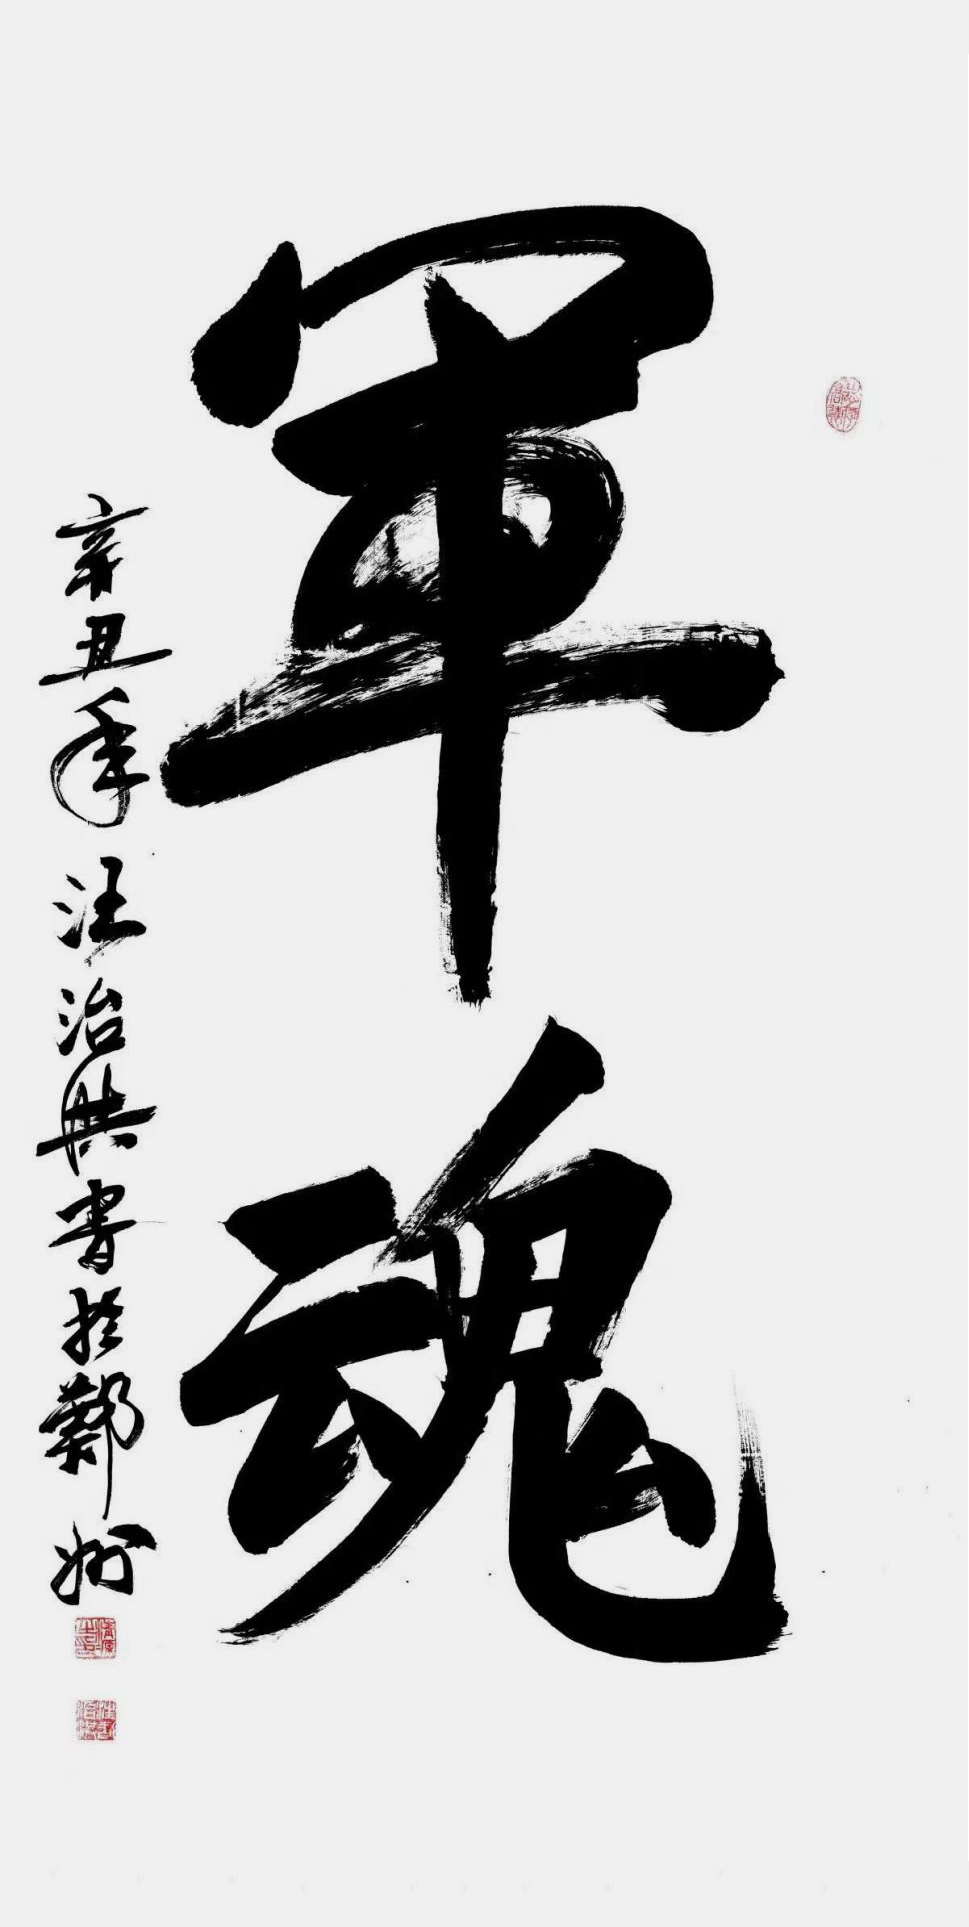 軍魂
辛丑年汪治典書於鄭州